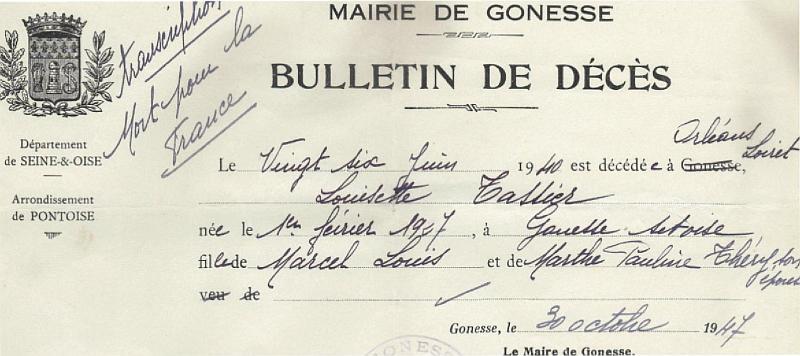 MAIRIE DE GONESSE
Transcription
Mort pour la
France
BULLETIN DE DÉCÈS
Département
de SEINE-&-OISE
Arrondissement
de PONTOISE
Orléans
Loiret
Le Vingt six Juin 1940 est décédée à Gonesse,
Louisette Tassier
née le 1er février 1927, à Gonesse S et oise
fille de Marcel Louis et de Marthe Pauline Théry son
épouse
veu de
Gonesse, le 30 octobre 1947
Le Maire de Gonesse.
GONESSE